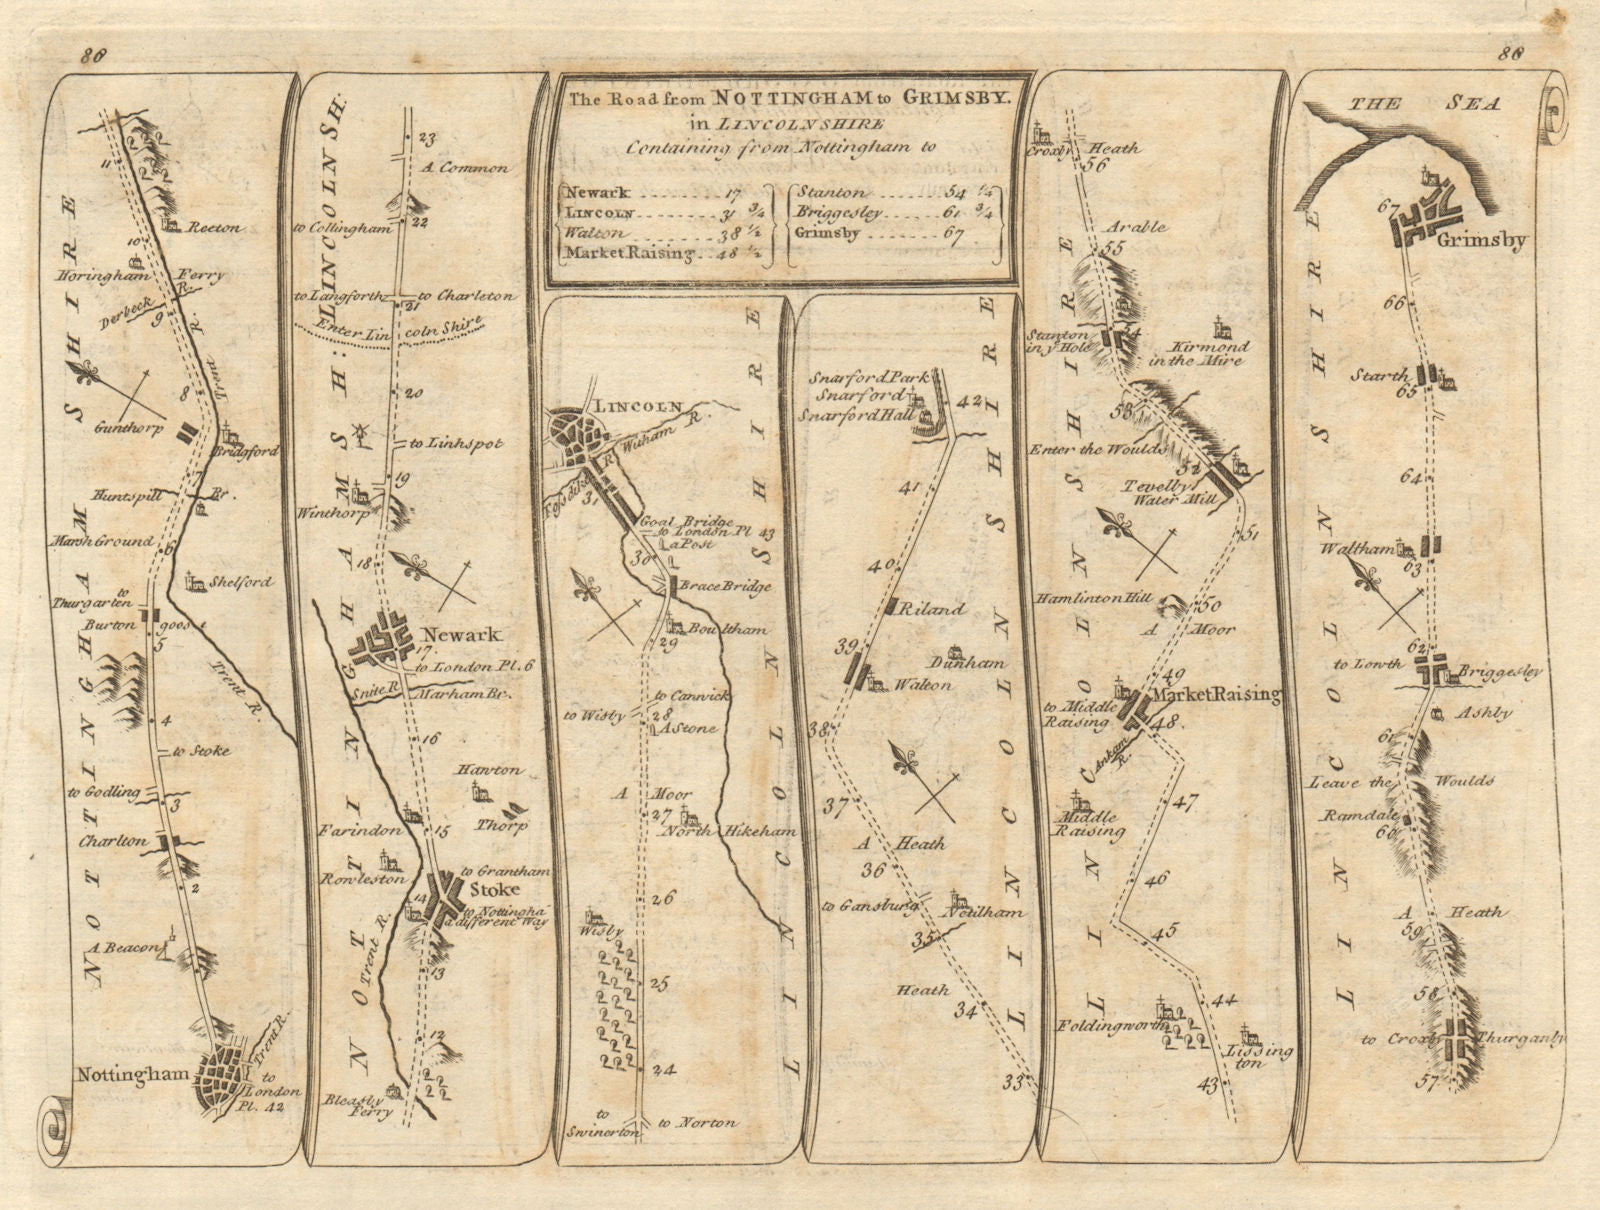 80
80
The Road from NOTTINGHAM to GRIMSBY.
in LINCOLNSHIRE
Containing from Nottingham to
Newark ........ 17
LINCOLN ........ 31 3/4
Walton ........ 38 1/2
Market Raising .. 48 1/2
Stanton ........ 54 1/4
Briggesley ...... 61 3/4
Grimsby ....... 67
NOTTINGHAM SHIRE
11
Reeton
10
Horingham Ferry
Derbeck R.
9
Trent R.
8
Gunthorp
Bridgford
7
Huntspill Br.
Marsh Ground
6
Shelford
to
Thurgarten
Burton goost
5
Trent R.
4
to Stoke
to Godling
3
Charlton
2
A Beacon
Nottingham
Trent R.
to
London
Pl. 42
NOTTINGHAMSH: LINCOLNSH:
23
A Common
to Collingham
22
to Langforth
to Charleton
21
Enter Lincoln Shire
20
to Linhspot
19
Winthorp
18
Newark
17
to London Pl. 6
Snite R.
Marham Br.
16
Hawton
Thorp
Farindon
15
Rowleston
to Grantham
Stoke
14
to Nottingha
a different Way
Trent R.
13
12
Bleasby
Ferry
LINCOLNSHIRE
LINCOLN
Witham R.
R
Foss dike
31
Goal Bridge
to London Pl 43
a Post
30
Brace Bridge
Boultham
29
to Canwick
to Wisby
28
A Stone
A Moor
27
North Hikeham
26
Wisby
25
24
to
Swinerton
to Norton
LINCOLNSHIRE
Snarford Park
Snarford
Snarford Hall
42
41
40
Riland
39
Dunham
Walton
38
37
A Heath
36
to Gansburg
Netilham
35
Heath
34
33
LINCOLNSHIRE
Croxby
Heath
56
Arable
55
Stanton
in y Hole
54
Kirmond
in the Mire
53
Enter the Woulds
52
Tevelby
Water Mill
51
Hamlinton Hill
50
A Moor
49
Market Raising
to Middle
Raising
48
Ankam
R.
47
Middle
Raising
46
45
44
Foldingworth
Lissing
ton
43
LINCOLNSHIRE
THE SEA
67
Grimsby
66
Starth
65
64
Waltham
63
62
to Lowth
Briggesley
Ashby
61
Leave the Woulds
Ramdale
60
A Heath
59
58
to Croxby
Thurganby
57